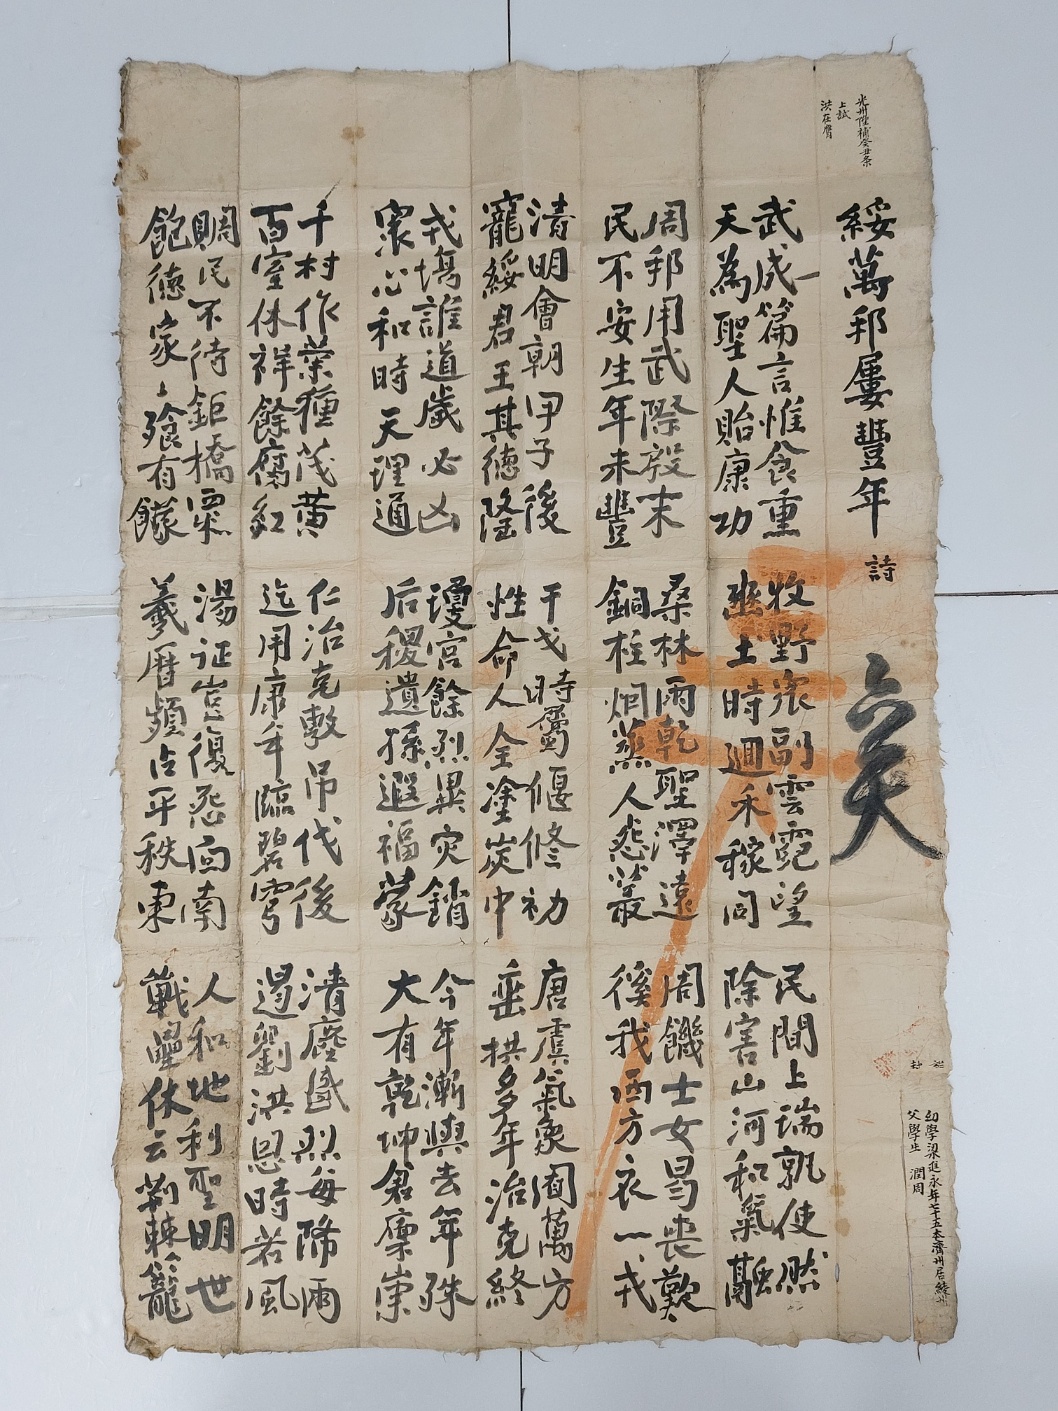 光州陞補癸丑条
上試
洪在膺
綏萬邦屢豐年 詩
六天
武成一篇言惟食重
天為聖人貽康功
周邦用武際殷末
民不安生年未豐
清明會朝甲子後
寵綏君王其德隆
戎場誰道歲必凶
衆心和時天理通
千村作業種茂黄
百室休祥餘腐紅
賙民不待鉅橋粟
飽德家〻飱有饛
牧野衆副雲霓望
豳土時迴禾稼同
桑林雨乾聖澤遠
銅柱炯蒸人怨叢
干戈時屬偃修初
性命人全塗炭中
瓊宮餘烈異灾銷
后稷遺孫遐福蒙
仁治克敷吊伐後
迄用康年臨碧穹
湯征豈復怨面南
羲曆頻占平秩東
民間上瑞孰使然
除害山河和氣融
周饑士女曷喪歎
徯我西方衣一戎
唐虞氣象囿萬方
垂拱多年治克終
今年漸與去年殊
大有乾坤倉廩崇
清塵盛烈每降雨
遏劉洪恩時若風
人和地利聖明世
戰壘休云荊棘籠
幼學梁進永年七十五本濟州居綾州
父學生 潤周